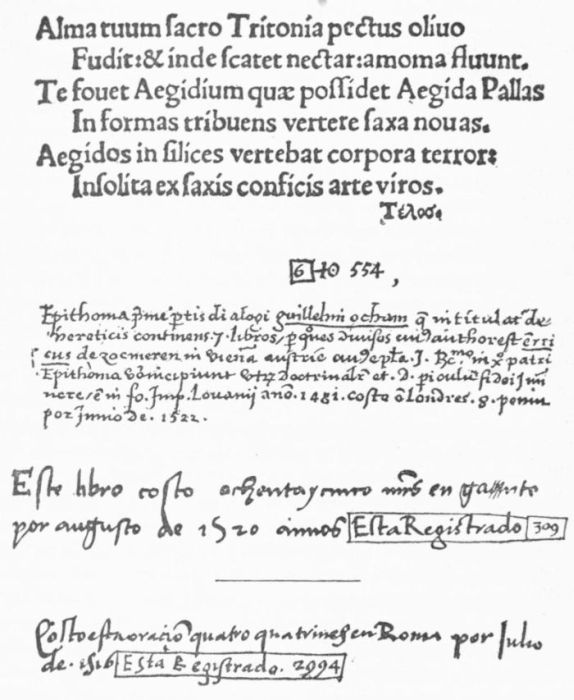 Alma tuum ſacro Tritonia pectus oliuo
Fudit:& inde ſcatet nectar:amoma fluunt.
Te fouet Aegidium quæ poſſidet Aegida Pallas
In formas tribuens vertere ſaxa nouas.
Aegidos in ſilices vertebat corpora terror:
Inſolita ex ſaxis conficis arte viros.
Τέλοσ.
6 554,
Epithoma guillelmi ocham intitulatͬ de
hereticis continens .7. libros diuisos author est erri
cus de zocmeren in vienā austrie
Epithoma incipiunt et
Imp. Louanij anō. 1481. costo ē londres .8.
por Junio de .1522.
Este libro costo ochenta y cinco mrs̄ en gante
por augusto de 1520 annos Esta Registrado 309
Costo esta oraciō quatro quatrines en Roma por Julio
de .1516 Esta Registrado. 2994